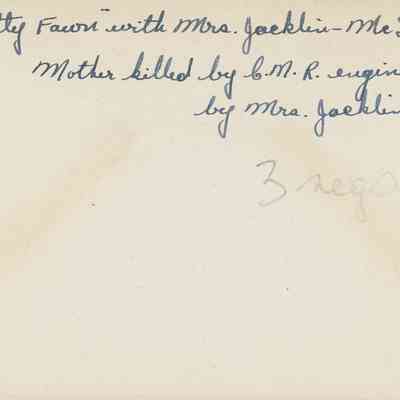 tty Fawn" with Mrs. Jacklin - Mc
Mother killed by C.N.R. engin
by Mrs. Jacklin
3 negs